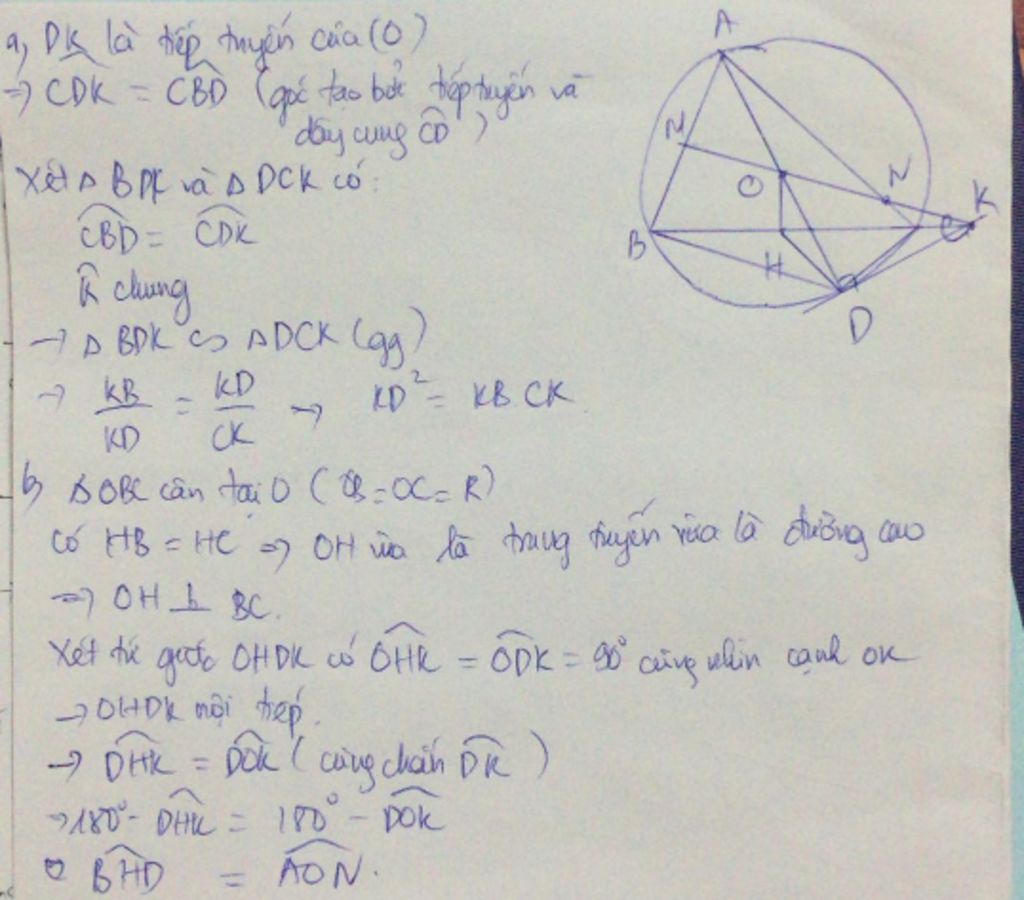 a, DK là tiếp tuyến của (O)
→ CDK = CBD (góc tạo bởi tiếp tuyến và
dây cung CD)
Xét △ BDK và △ DCK có:
CBD = CDK
K chung
→ △ BDK ∽ △ DCK (gg)
→ KB/KD = KD/CK → KD² = KB CK
b, △ OBC cân tại O (OB = OC = R)
Có HB = HC ⇒ OH vừa là trung tuyến vừa là đường cao
⇒ OH ⊥ BC.
Xét tứ giác OHDK có OHK = ODK = 90° cùng nhìn cạnh OK
→ OHDK nội tiếp.
→ DHK = DOK (cùng chắn DK)
→ 180° - DHK = 180° - DOK
BHD = AON.
A
M
O
N
K
B
H
D